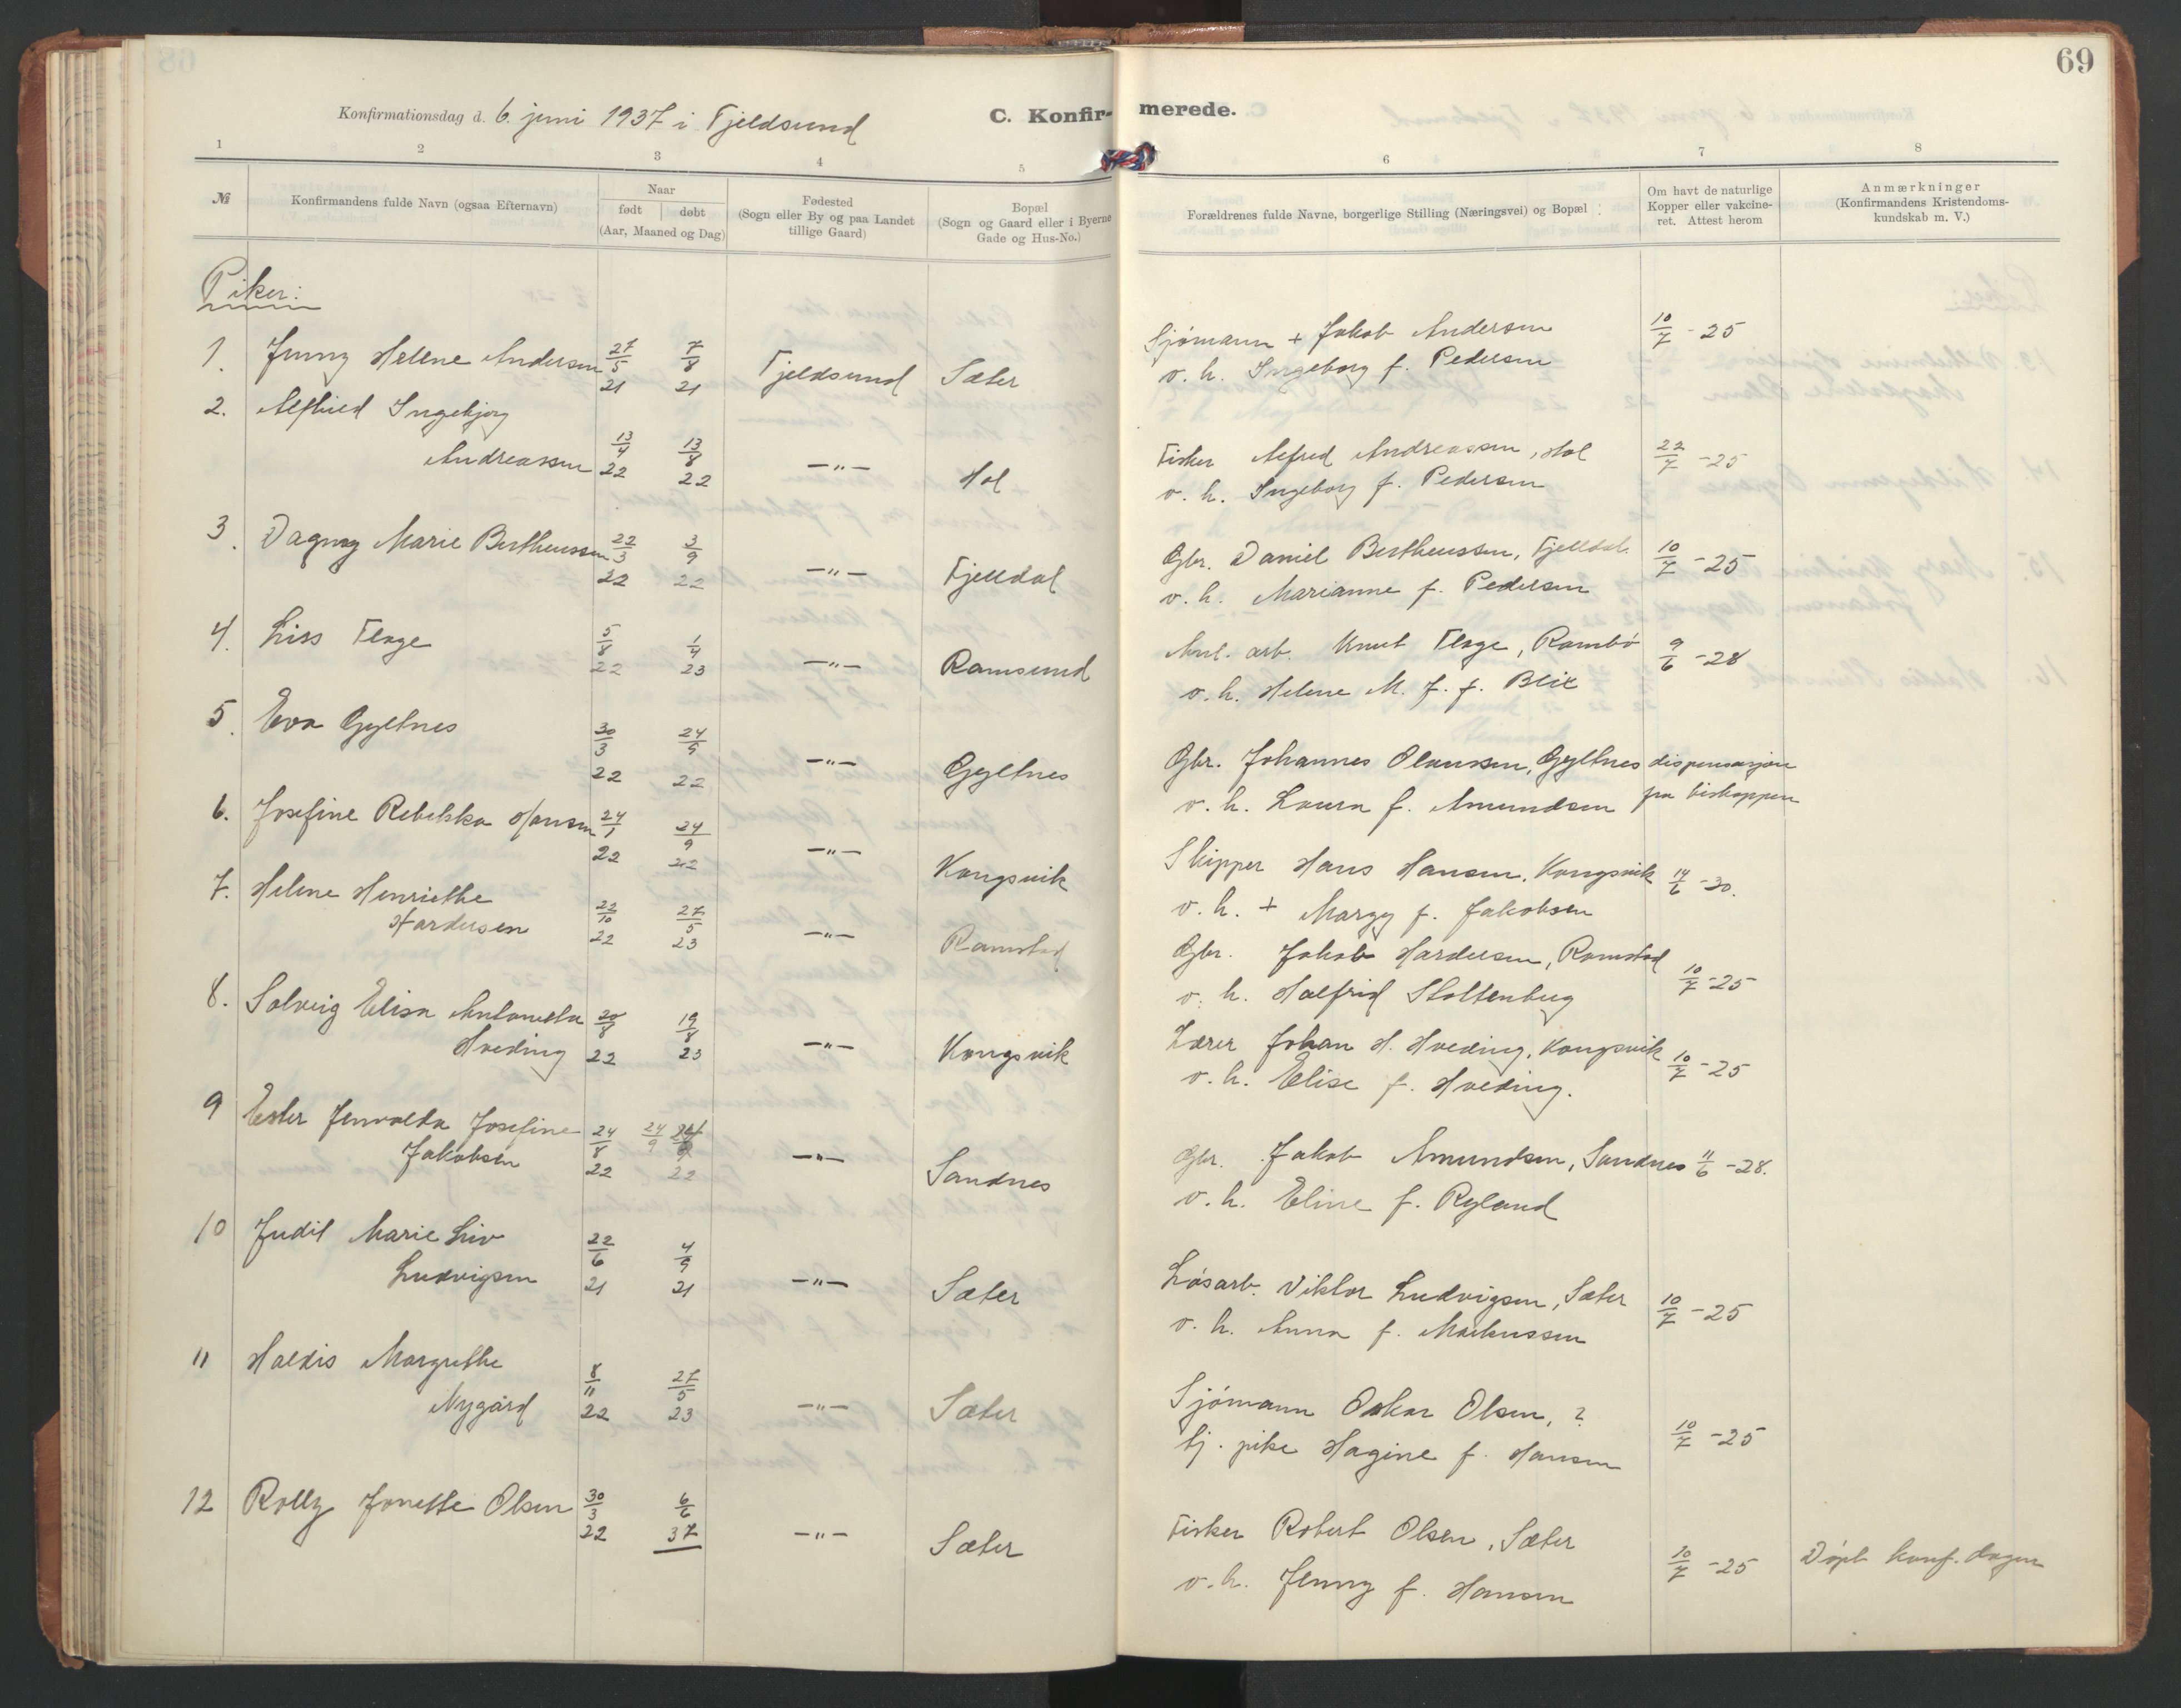 69
Konfirmationsdag d. 6. juni 1937 i Fjeldsund
C. Konfirmerede.
1 2 3 4 5 6 7 8
№
Konfirmandens fulde Navn (ogsaa Efternavn)
Naar
født | døbt
(Aar, Maaned og Dag)
Fødested
(Sogn eller By og paa Landet
tillige Gaard)
Bopæl
(Sogn og Gaard eller i Byerne
Gade og Hus-No.)
Forældrenes fulde Navne, borgerlige Stilling (Næringsvei) og Bopæl
Om havt de naturlige
Kopper eller vakcine-
ret. Attest herom
Anmærkninger
(Konfirmandens Kristendoms-
kundskab m. V.)
Piker:
1. Jenny Helene Andersen 27/5 21 7/8 21 Fjeldsund Sæter
Sjømann + Jakob Andersen 10/7 - 25
o. h. Ingeborg f. Pedersen
2. Alfhild Ingebjørg
Andreassen 13/4 22 13/8 22 —"— Hol
Fisker Alfred Andreassen, Hol 22/7 - 25
o. h. Ingeborg f. Pedersen
3. Dagny Marie Bertheussen 22/3 22 3/9 22 —"— Fjelldal
Gbr. Daniel Bertheussen, Fjelldal 10/7 - 25
o. h. Marianne f. Pedersen
4. Liss Flage 5/8 22 1/4 23 —"— Ramsund
Anl. arb. Knut Flage, Rambø 9/6 - 28
o. h. Helene M. J. f. Blix
5. Eva Gyltnes 30/3 22 24/9 22 —"— Gyltnes
Gbr. Johannes Olaussen, Gyltnes dispensasjon
o. h. Laura f. Amundsen fra biskoppen
6. Josefine Rebekka Hansen 24/1 22 24/9 22 —"— Kongsvik
Skipper Hans Hansen, Kongsvik 14/6 - 30.
o. h. + Margy f. Jakobsen
7. Helene Henriette
Hardersen 22/10 22 27/5 23 —"— Ramstad
Gbr. Jakob Hardersen, Ramstad 10/7 - 25
o. h. Halfrid Stoltenberg
8. Solveig Elisa Antonetta
Hveding 20/8 22 19/8 23 —"— Kongsvik
Lærer Johan H. Hveding, Kongsvik 10/7 - 25
o. h. Elise f. Hveding.
9 Ester Jenvalda Josefine
Jakobsen 24/8 22 24/9 22 —"— Sandnes
Gbr. Jakob Amundsen, Sandnes 11/6 - 28.
o. h. Eline f. Ryland
10 Judit Marie Liv
Ludvigsen 22/6 21 4/9 21 —"— Sæter
Løsarb. Viktor Ludvigsen, Sæter 10/7 - 25
o. h. Anna f. Markussen
11 Haldis Margrethe
Nygård 8/11 22 27/5 23 —"— Sæter
Sjømann Oskar Olsen, ? 10/7 - 25
tj. pike Hagine f. Hansen
12 Rolly Jonette Olsen 30/3 22 6/6 37 —"— Sæter
Fisker Robert Olsen, Sæter 10/7 - 25 Døpt konf. dagen
o. h. Jenny f. Hansen